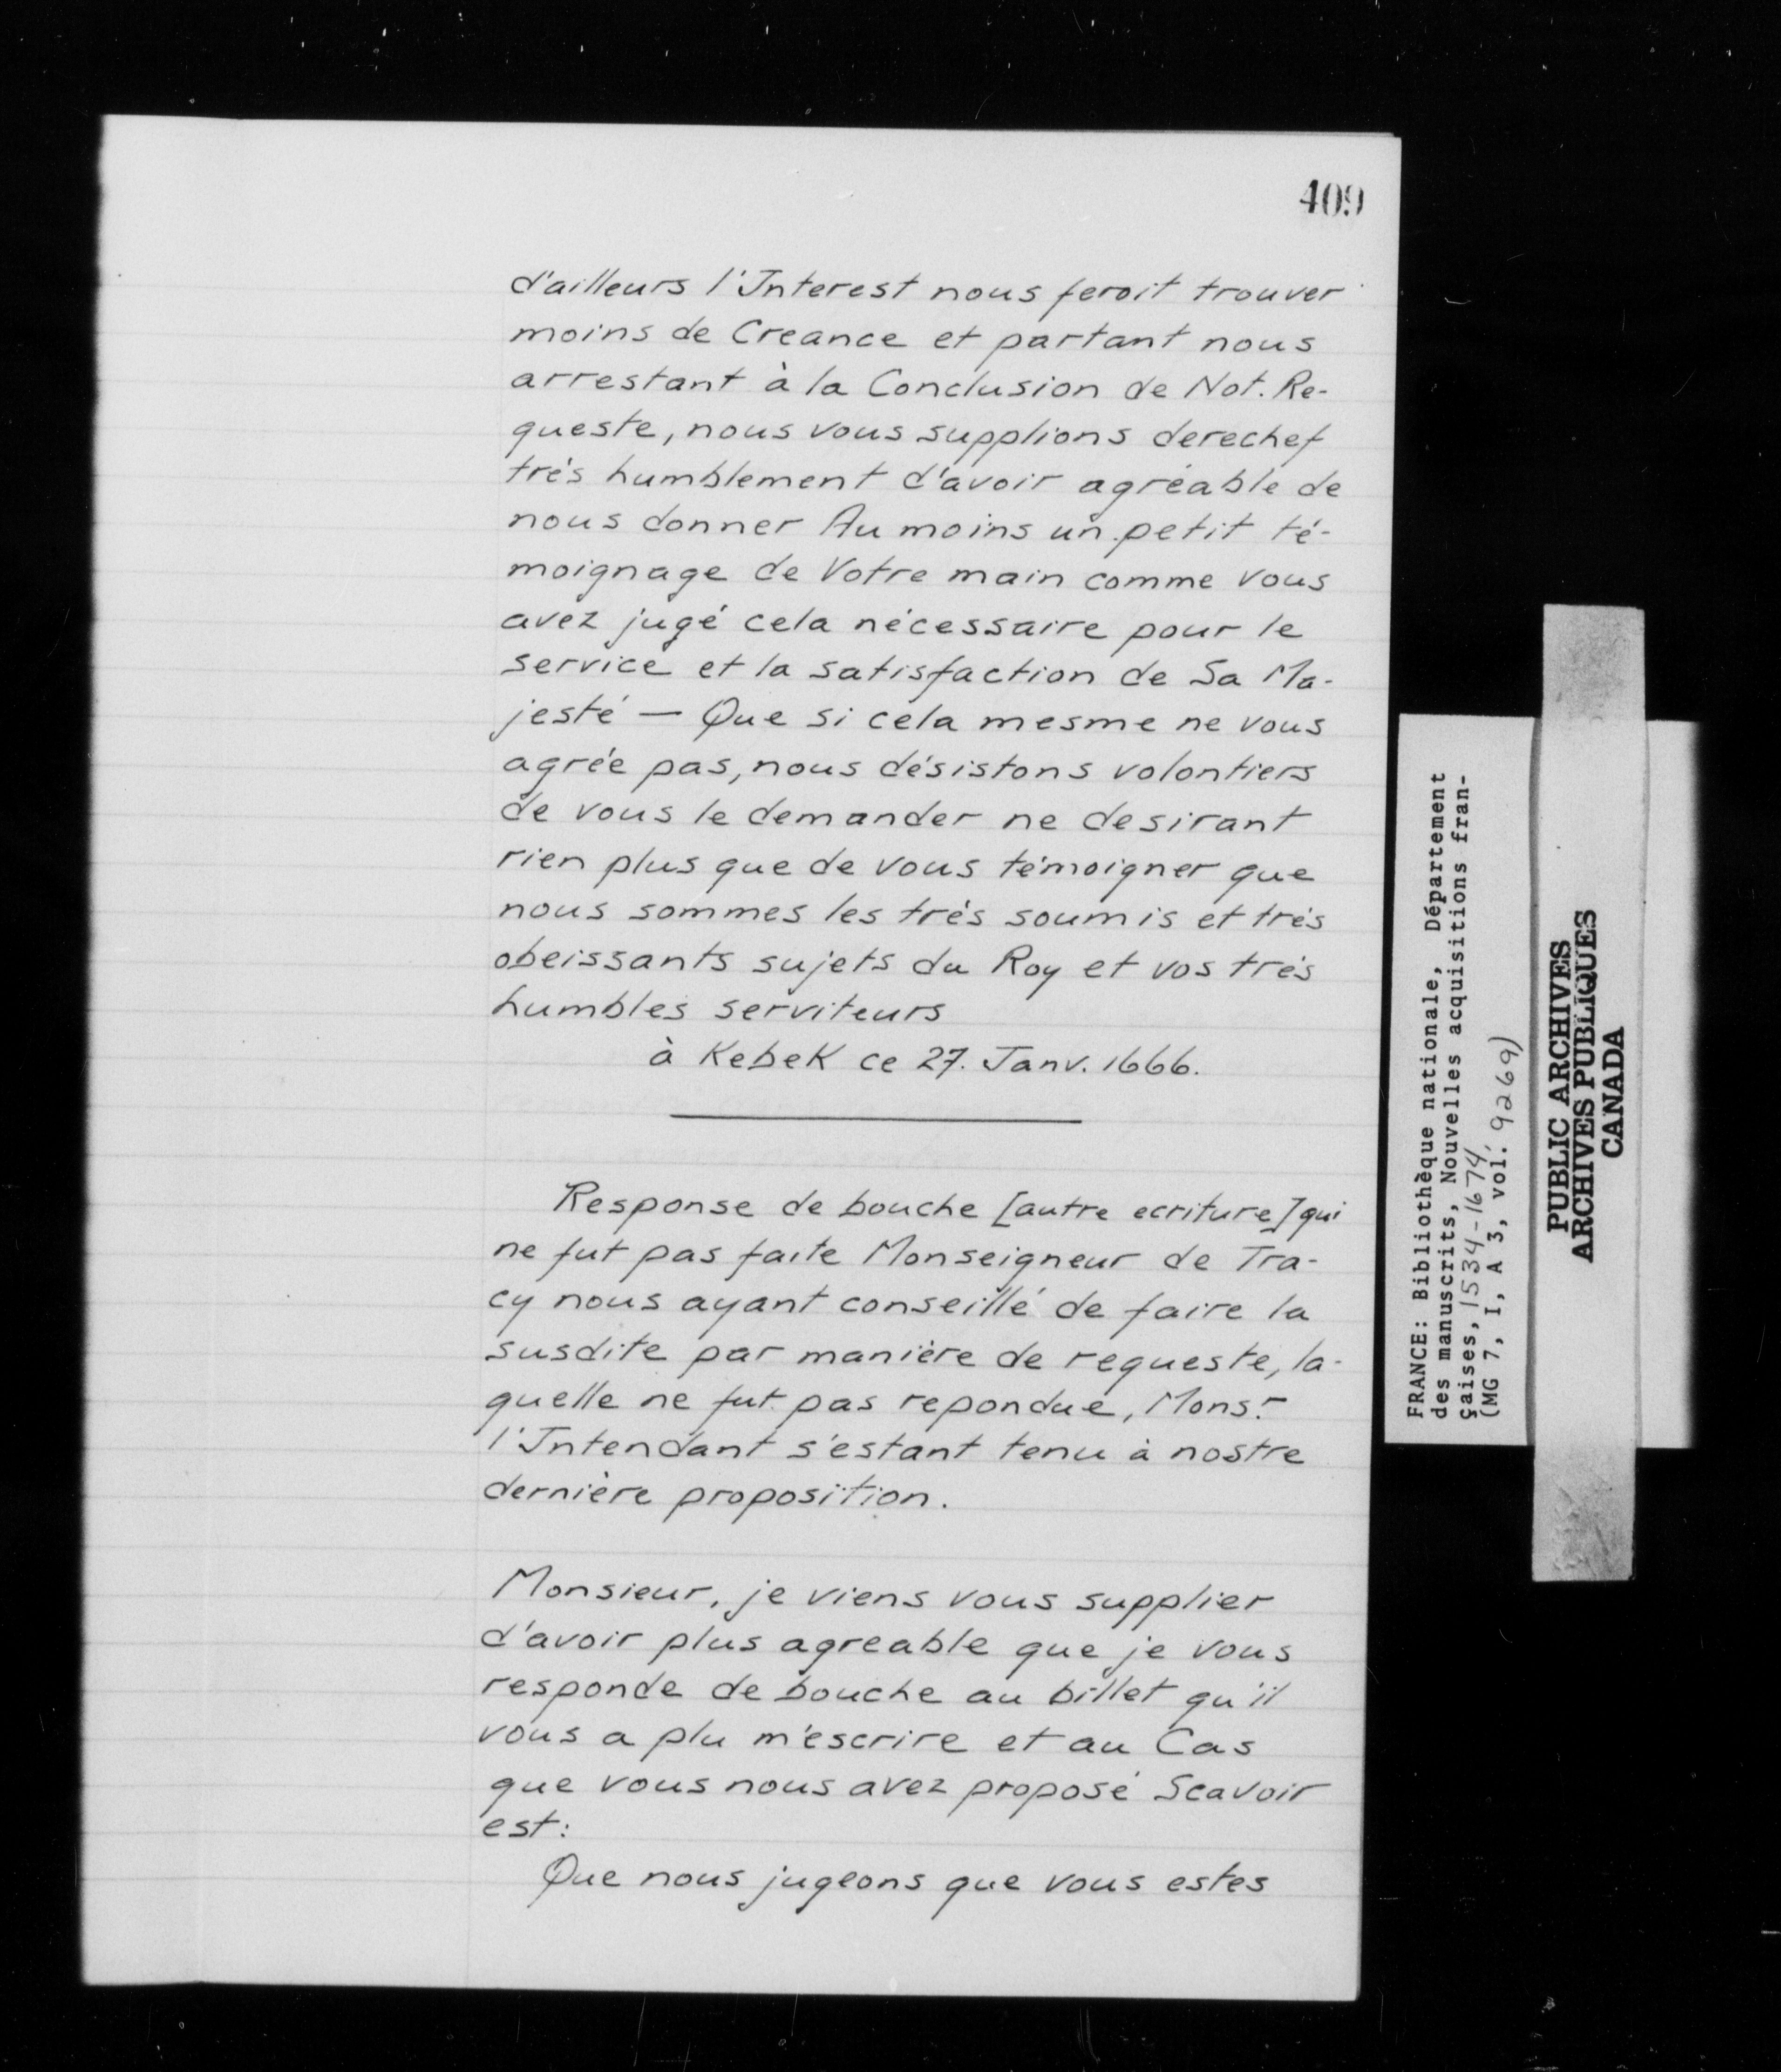 409
d'ailleurs l'Interest nous feroit trouver
moins de Creance et partant nous
arrestant à la Conclusion de Not. Re-
queste, nous vous supplions derechef
trés humblement d'avoir agréable de
nous donner Au moins un petit té-
moignage de Votre main comme vous
avez jugé cela nécessaire pour le
service et la satisfaction de Sa Ma-
jesté — Que si cela mesme ne vous
agrée pas, nous désistons volontiers
de vous le demander ne desirant
rien plus que de vous témoigner que
nous sommes les trés soumis et trés
obeissants sujets du Roy et vos trés
humbles serviteurs
à Kebek ce 27. Janv. 1666.
Response de bouche [autre ecriture] qui
ne fut pas faite Monseigneur de Tra-
cy nous ayant conseillé de faire la
susdite par manière de requeste, la-
quelle ne fut pas repondue, Mons.r
l'Intendant s'estant tenu à nostre
dernière proposition.
Monsieur, je viens vous supplier
d'avoir plus agreable que je vous
responde de bouche au billet qu'il
vous a plu m'escrire et au Cas
que vous nous avez proposé Scavoir
est:
Que nous jugeons que vous estes
FRANCE: Bibliothèque nationale, Département
des manuscrits, Nouvelles acquisitions fran-
çaises, 1534-1674
(MG 7, I, A 3, vol. 9269)
PUBLIC ARCHIVES
ARCHIVES PUBLIQUES
CANADA